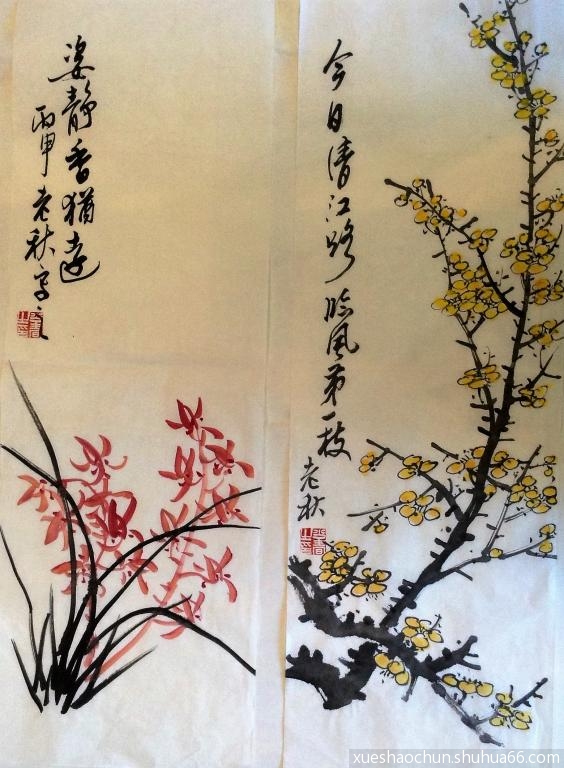 姿静香猶遠
丙申老秋写
今日清江路临風第一枝
老秋
xueshaochun.shuhua66.com